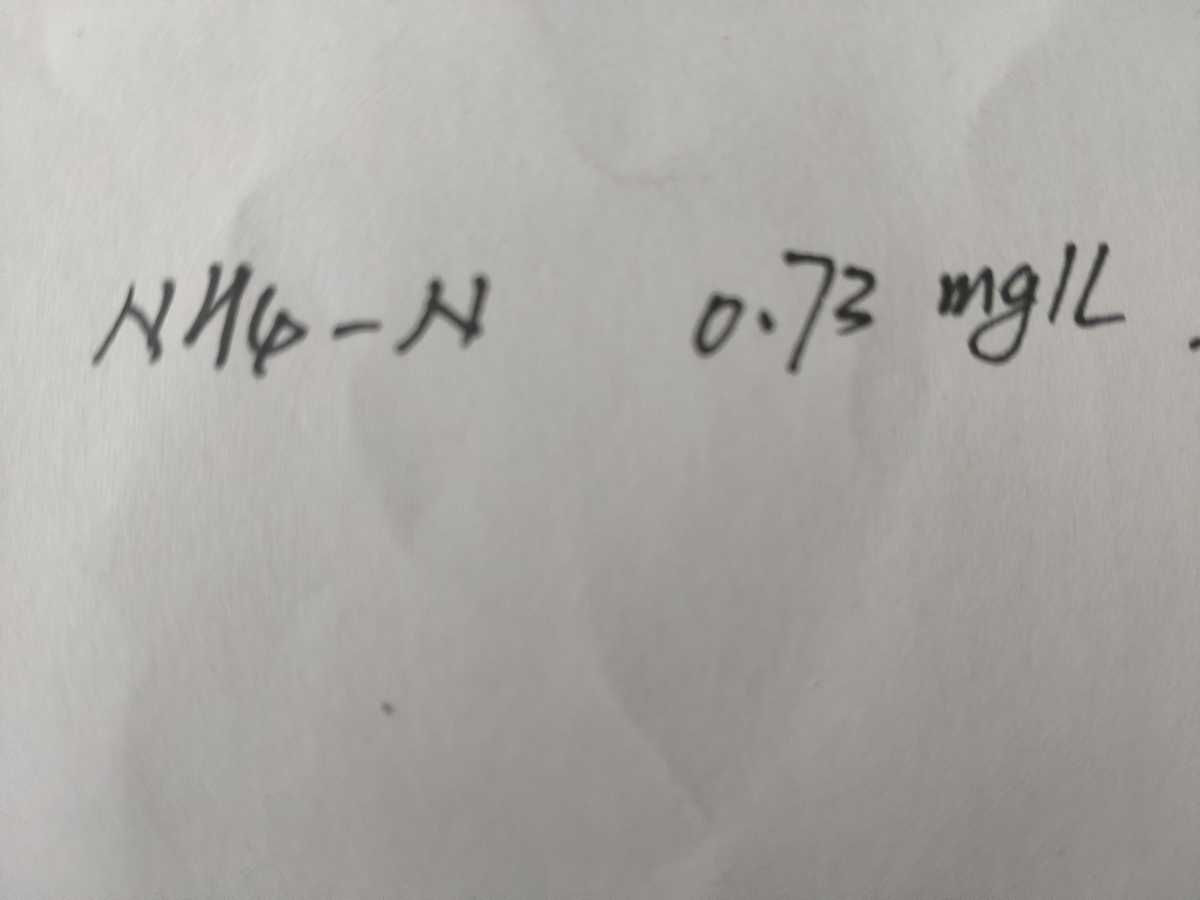 NH4-N 0.73 mg/L